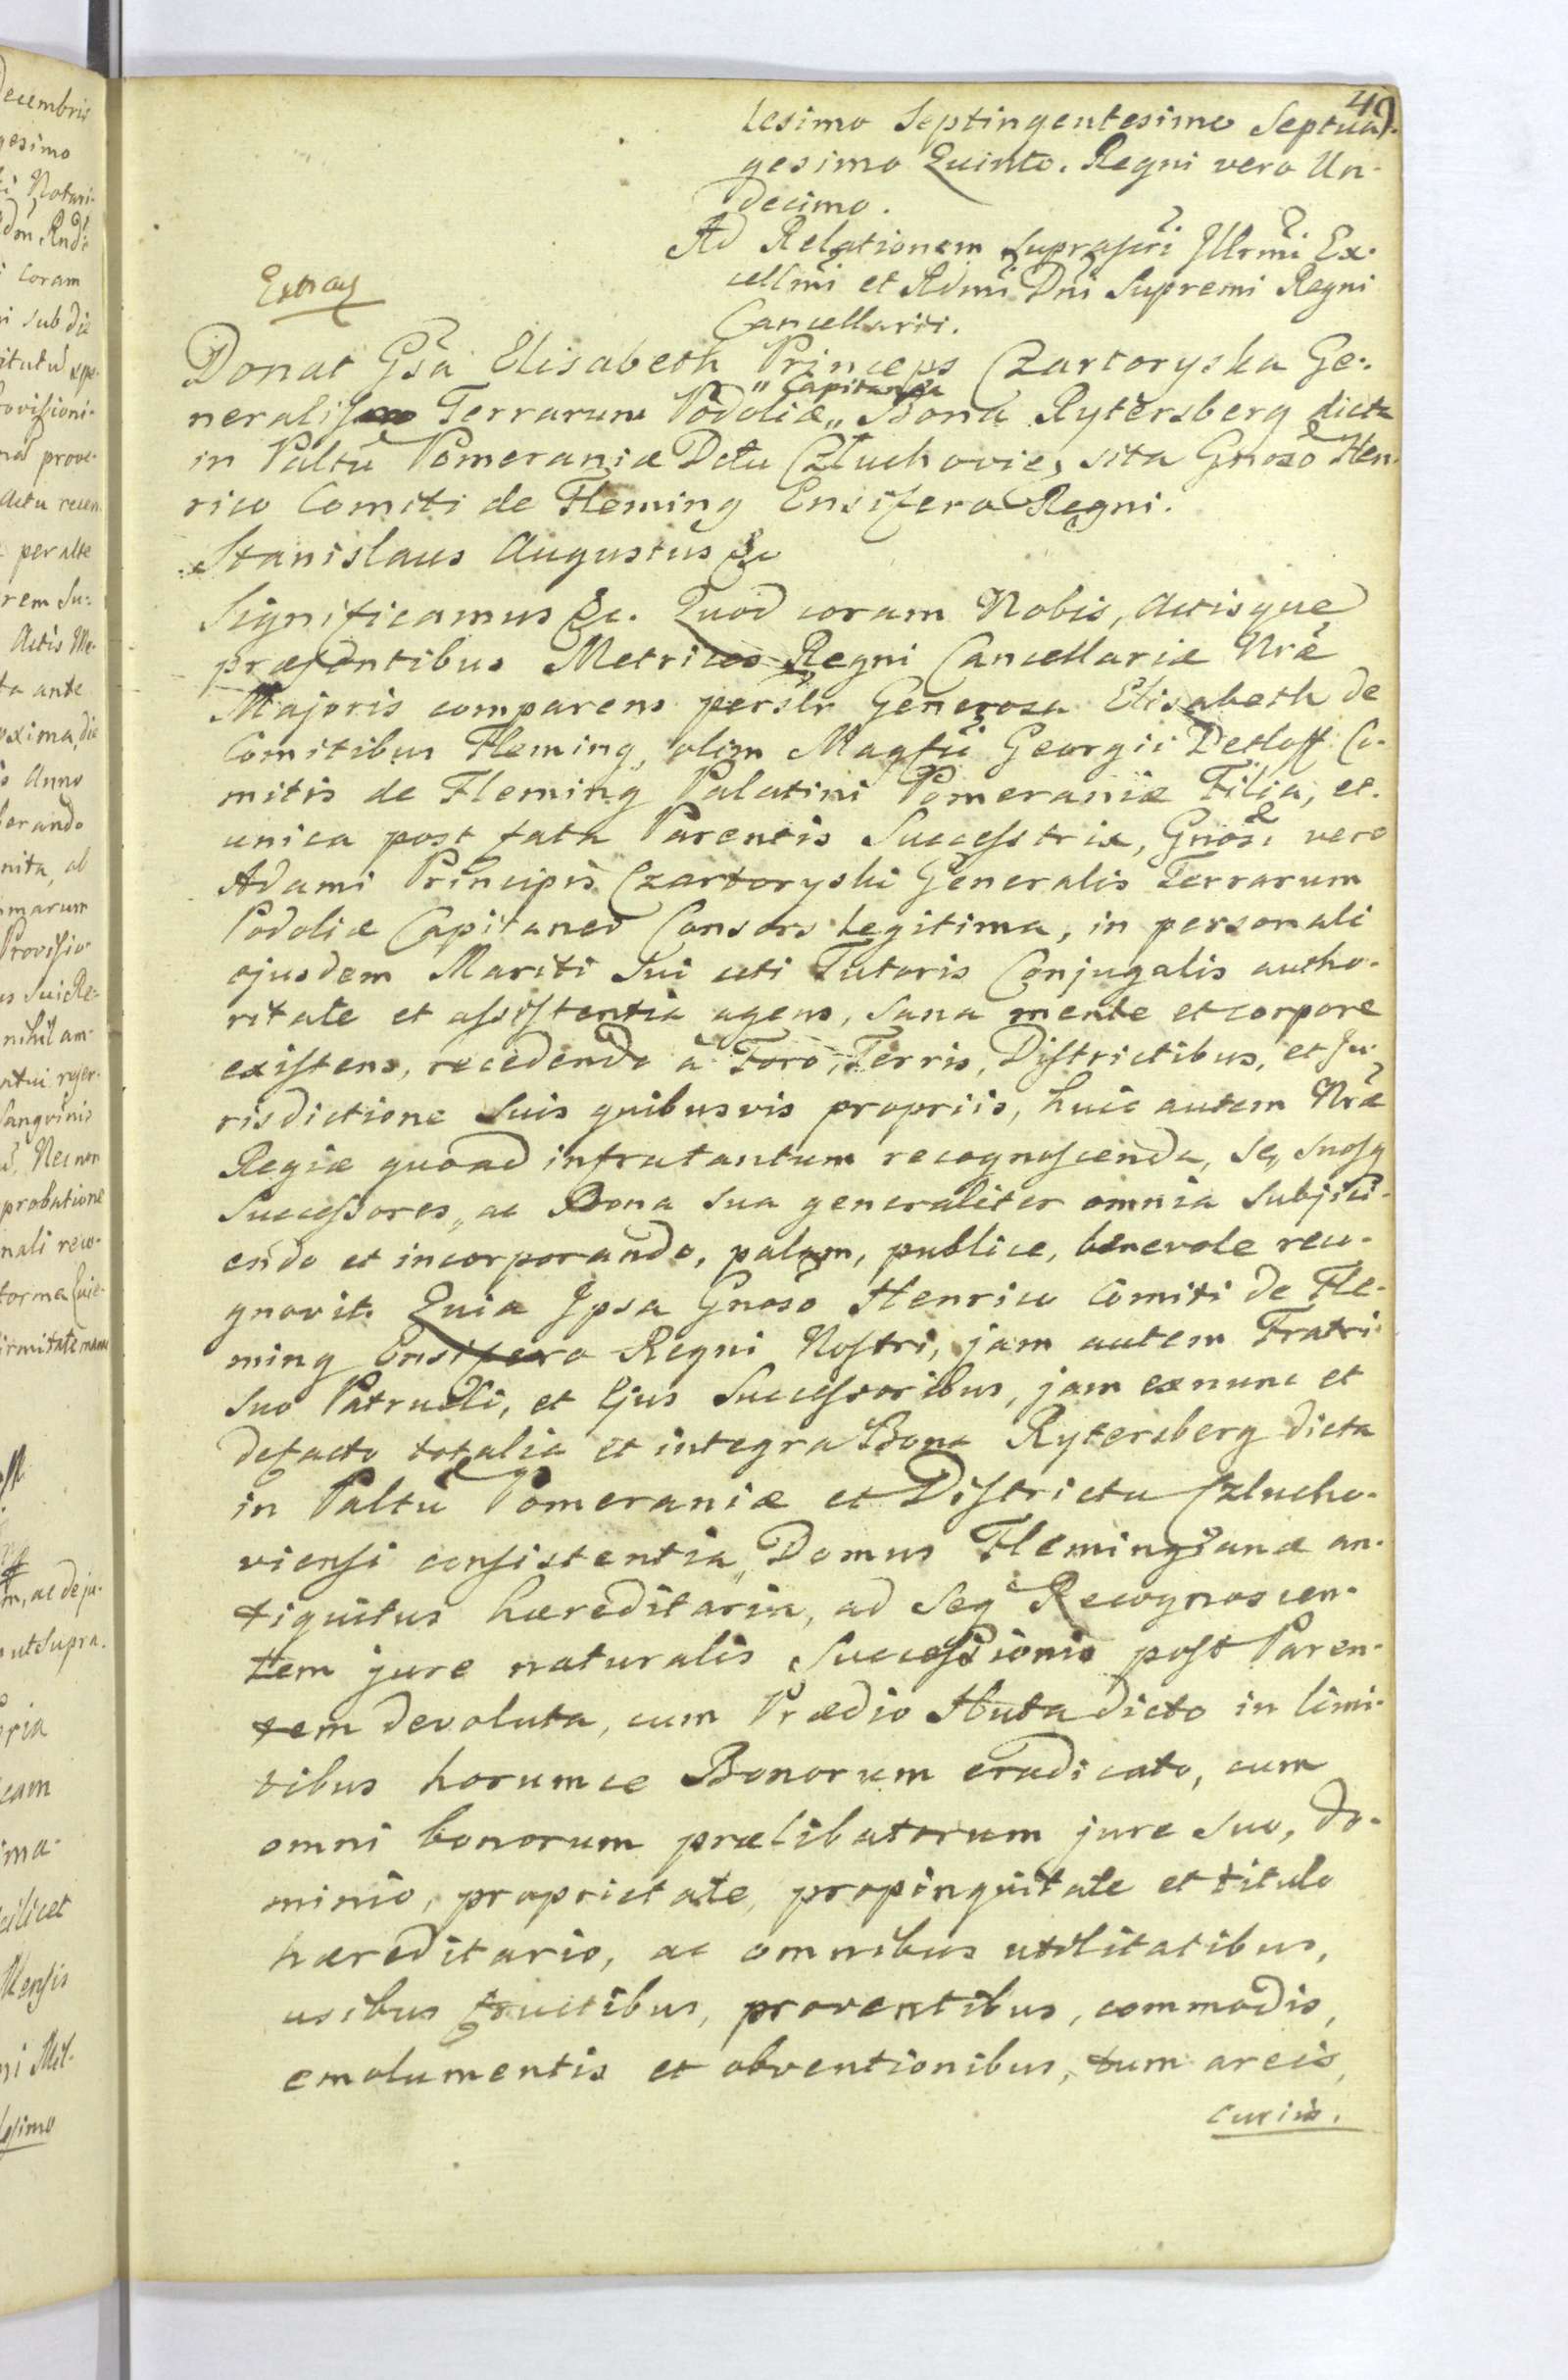 49.
lesimo Septingentesimo Septua-
gesimo Quinto. Regni vero Un-
decimo.
Ad Relationem Suprascri Illrmi Ex-
cellmi et Rdmi Dni Supremi Regni
Cancellarii.
Donat Gsa Elisabeth Princeps Czartoryska Ge-
neralis Terrarum Podoliæ „ Capitanea „ Bona Rytersberg dicta
in Paltu Pomeraniæ Dctu Człuchovie, sita Gnoso Hen-
rico Comiti de Fleming Ensifero Regni.
Stanislaus Augustus &c
Significamus &c. Quod coram Nobis, Actisque
præsentibus Metrices Regni Cancellariæ Nræ
Majoris comparens perslr Generosa Elisabeth de
Comitibus Fleming, olim Magfci Georgii Detloff Co-
mitis de Fleming Palatini Pomeraniæ Filia, et
unica post fata Parentis Successtrix, Gnosi vero
Adami Principis Czartoryski Generalis Terrarum
Podoliæ Capitanei Consors legitima, in personali
ejusdem Mariti Sui uti Tutoris Conjugalis autho-
ritate et assistentia agens, sana mente et corpore
existens, recedendo à Foro, Terris, Districtibus, et Ju-
risdictione Suis quibusvis propriis, huic autem Nræ
Regiæ quoad infrutantum recognoscenda, se, suosq
Successores „ ac Bona sua generaliter omnia subjici-
endo et incorporando, palam, publice, benevole reco-
gnovit. Quia Ipsa Gnoso Henrico Comiti de Fle-
ming Ensifero Regni Nostri, jam autem Fratri
suo Patrueli, et Ejus Successoribus, jam exnunc et
defacto totalia et integra Bona Rytersberg dicta
in Paltu Pomeraniæ et Districtu Człucho-
viensi consistentia, Domus Flemingianæ an-
tiquitus hæreditaria, ad Seq Recognoscen-
tem jure naturalis Successionis post Paren-
tem devoluta, cum Prædio Huta dicto in limi-
tibus horumce Bonorum eradicato, cum
omni bonorum prælibatorum jure suo, do-
minio, proprietate, propinquitate et titulo
hæreditario, ac omnibus utilitatibus,
usibus fructibus, proventibus, commodis,
emolumentis et obventionibus, tum areis,
curiis.